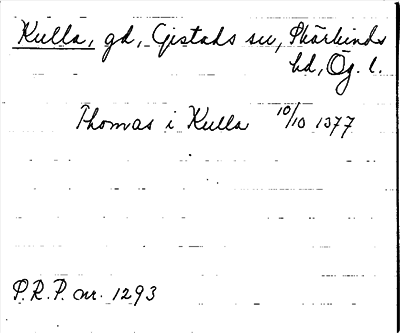 Kulla, gd, Gistads sn, Skärkinds
hd, Ög. l.
Thomas i Kulla 10/10 1377
P.R.P. nr. 1293